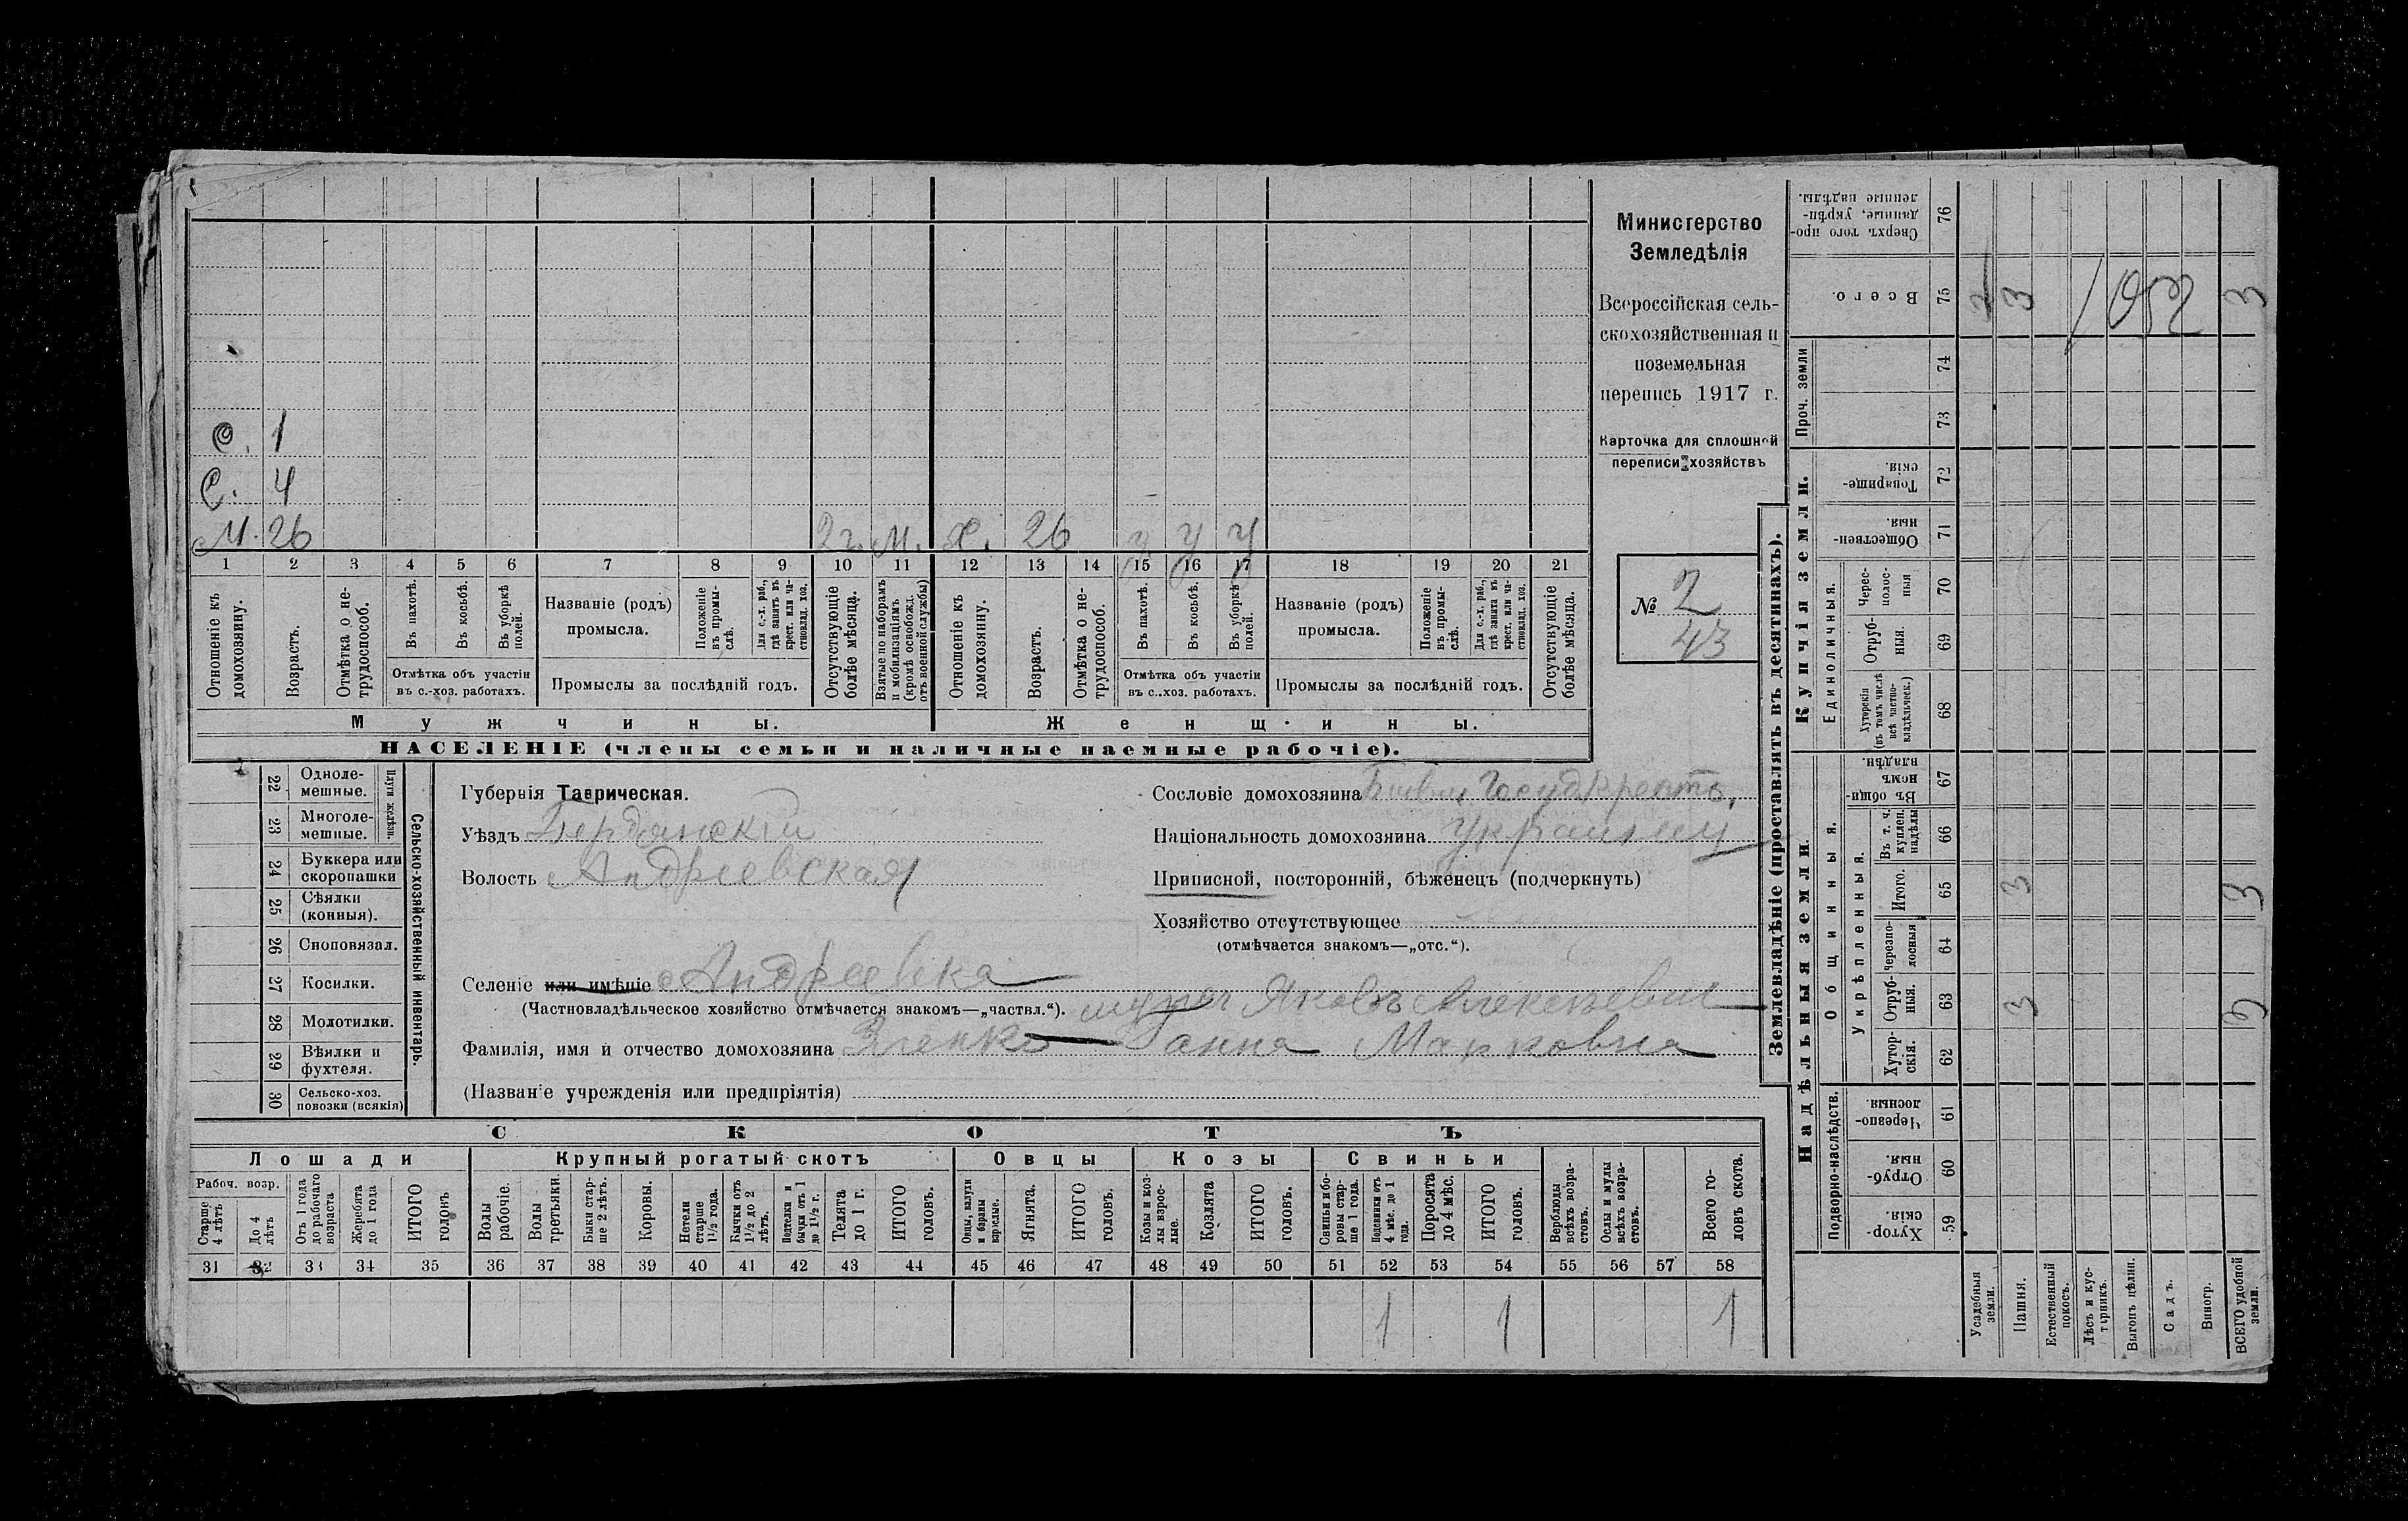 С. 1
С. 4
М. 26 2 г. М. Х. 26 У У У
1 2 3 4 5 6 7 8 9 10 11 12 13 14 15 16 17 18 19 20 21
Отношеніе къ домохозяину.
Возрастъ.
Отмѣтка о не-трудоспособ.
Въ пахотѣ.
Въ косьбѣ.
Въ уборкѣ полей.
Отмѣтка объ участіи
въ с.-хоз. работахъ.
Названіе (родъ)
промысла.
Положеніе въ промы-слѣ.
Для с.-х. раб., гдѣ занятъ въ крест. или ча-стновлад. хоз.
Промыслы за послѣдній годъ.
Отсутствующіе болѣе мѣсяца.
Взятые по наборамъ и мобилизаціямъ (кромѣ освобожд. отъ военной службы)
Отношеніе къ домохозяину.
Возрастъ.
Отмѣтка о не-трудоспособ.
Въ пахотѣ.
Въ косьбѣ.
Въ уборкѣ полей.
Отмѣтка объ участіи
въ с.-хоз. работахъ.
Названіе (родъ)
промысла.
Положеніе въ промы-слѣ.
Для с.-х. раб., гдѣ занята въ крест. или ча-стновлад. хоз.
Промыслы за послѣдній годъ.
Отсутствующіе болѣе мѣсяца.
Мужчины. Женщины.
НАСЕЛЕНІЕ (члены семьи и наличные наемные рабочіе).
Министерство
Земледѣлія
Всероссійская сель-
скохозяйственная и
поземельная
перепись 1917 г.
Карточка для сплошной
переписи хозяйствъ
№ 2
43
22 Одноле-мешные.
23 Многоле-мешные.
Плуги желѣзн.
24 Буккера или скоропашки
25 Сѣялки (конныя).
26 Сноповязал.
27 Косилки.
28 Молотилки.
29 Вѣялки и фухтеля.
30 Сельско-хоз. повозки (всякія)
Сельско-хозяйственный инвентарь.
Губернія Таврическая.
Уѣздъ Бердянскій
Волость Андреевская
Сословіе домохозяина Бывш. Госуд. Крест.
Національность домохозяина Украинец
Приписной, посторонній, бѣженецъ (подчеркнуть)
Хозяйство отсутствующее
(отмѣчается знакомъ—„отс.“).
Селеніе или имѣніе Андреевка
(Частновладѣльческое хозяйство отмѣчается знакомъ—„частвл.“). Яковъ Алексѣевич
Фамилія, имя и отчество домохозяина Ганна Марковна
(Названіе учрежденія или предпріятія)
СКОТЪ
Лошади Крупный рогатый скотъ Овцы Козы Свиньи
Рабоч. возр.
Старше 4 лѣтъ
До 4 лѣтъ
Отъ 1 года до рабочаго возраста
Жеребята до 1 года
ИТОГО головъ
Волы рабочіе.
Волы третьяки.
Быки стар-ше 2 лѣтъ.
Коровы.
Нетели старше 1½ года.
Бычки отъ 1½ до 2 лѣтъ.
Подтелки и бычки отъ 1 до 1½ г.
Телята до 1 г.
ИТОГО головъ.
Овцы, валухи и бараны взрослые.
Ягнята.
ИТОГО головъ.
Козы и коз-лы взрос-лые.
Козлята
ИТОГО головъ.
Свиньи и бо-ровы стар-ше 1 года.
Подсвинки отъ 4 мѣс. до 1 года.
Поросята до 4 мѣс.
ИТОГО головъ.
Верблюды всѣхъ возра-стовъ.
Ослы и мулы всѣхъ возра-стовъ.
Всего го-ловъ скота.
31 32 33 34 35 36 37 38 39 40 41 42 43 44 45 46 47 48 49 50 51 52 53 54 55 56 57 58
1 1 1
Землевладѣніе (проставлять въ десятинахъ).
Надѣльныя земли. Купчія земли. Проч. земли
Подворно-наслѣдств. Общинныя. Единоличныя.
Укрѣпленныя.
Хутор-скія. 59
Отруб-ныя. 60
Черезпо-лосныя. 61
Хутор-скія. 62
Отруб-ныя. 63
Черезпо-лосныя 64
Итого. 65
Въ т. ч. куплен. надѣлы 66
Въ общин-номъ владѣн. 67
Хуторскія (въ томъ числѣ всѣ частно-владѣльческ.) 68
Отруб-ныя. 69
Черес-полос-ныя 70
Обществен-ныя. 71
Товарище-скія. 72
73
74
Всего. 75
Сверхъ того про-данные, укрѣп-ленные надѣлы. 76
Усадебныя земли.
Пашня. 3 3 3
Естественный покосъ.
Лѣсъ и кус-тарникъ.
Выгонъ цѣлин.
Садъ.
Виногр.
ВСЕГО удобной земли. 3 3 3